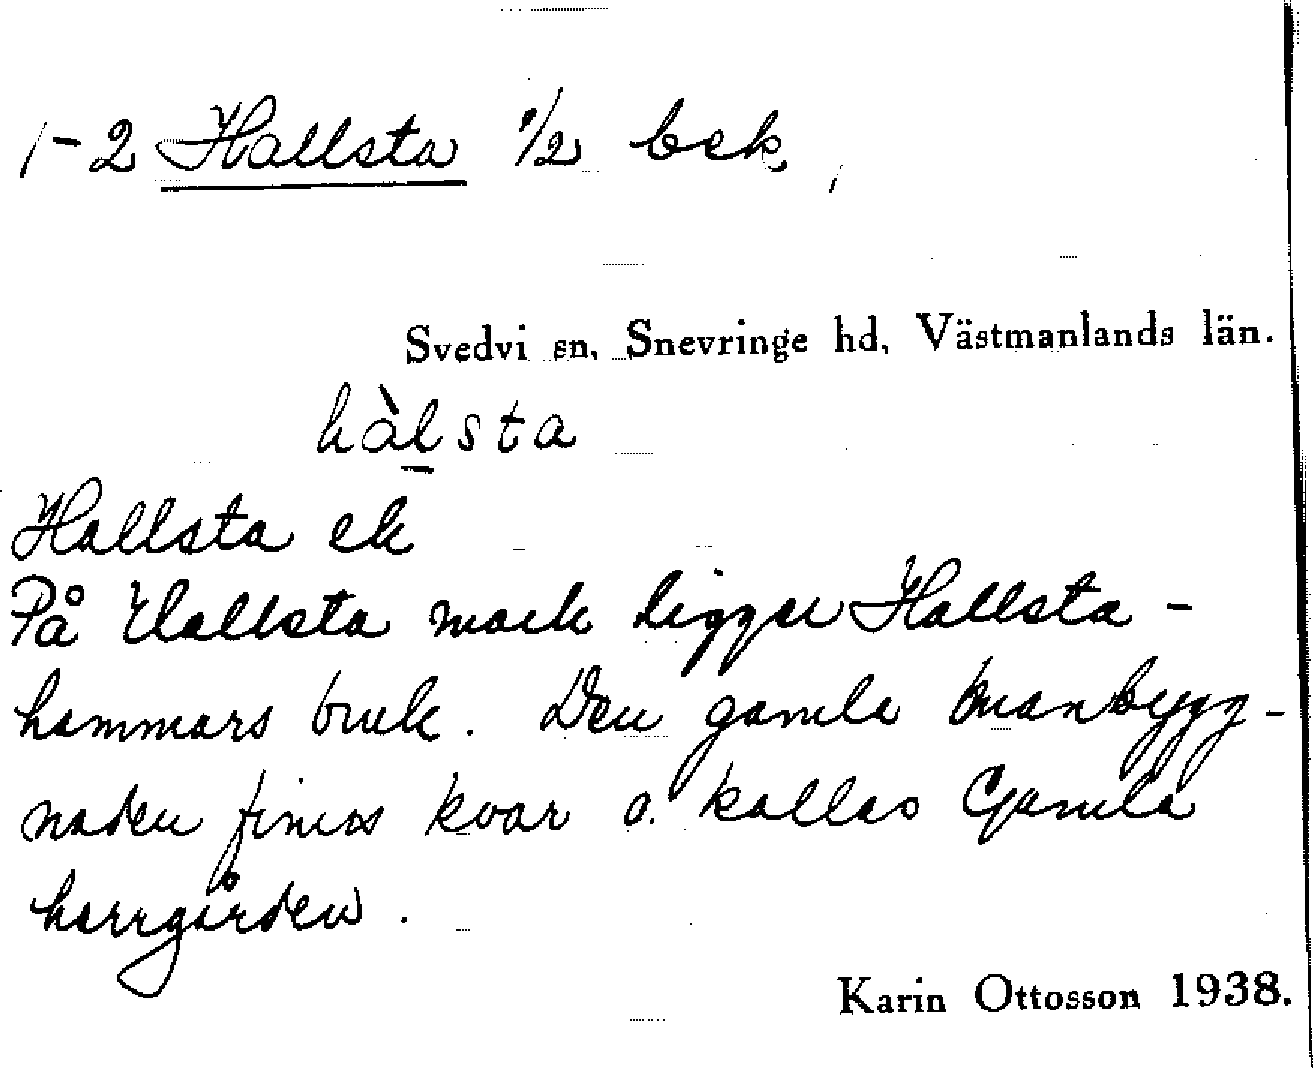 1-2 Hallsta 1/2 bek,
Svedvi sn, Snevringe hd, Västmanlands län.
hàlsta
Hallsta ek
På Hallsta mark ligger Hallsta-
hammars bruk. Den gamla manbygg-
naden finns kvar o. kallas Gamla
herrgården.
Karin Ottosson 1938.